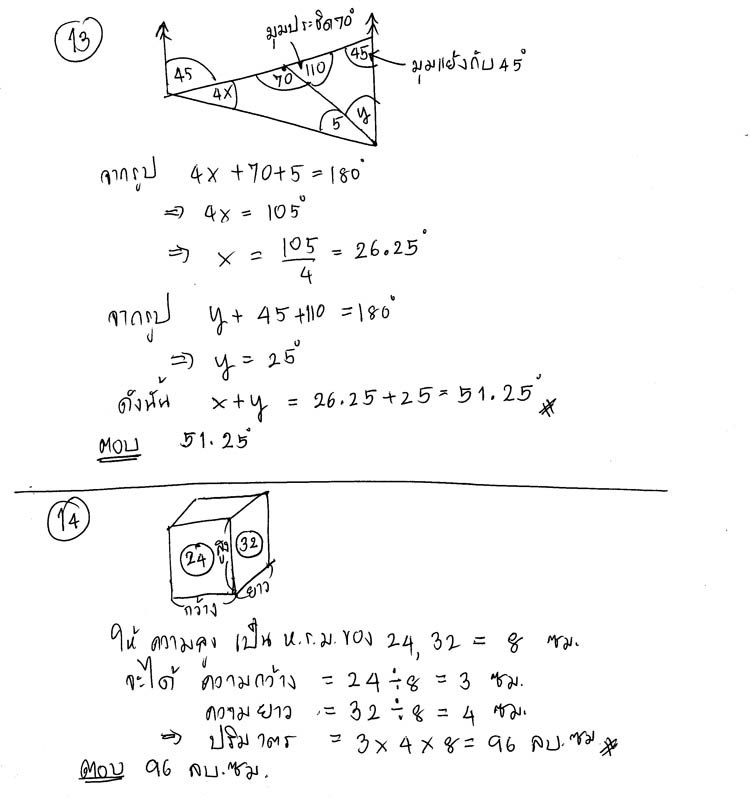 13
มุมประชิด 70°
45 4x 70 110 45 5 y
มุมแย้งกับ 45°
จากรูป 4x + 70 + 5 = 180°
⇒ 4x = 105°
⇒ x = 105/4 = 26.25°
จากรูป y + 45 + 110 = 180°
⇒ y = 25°
ดังนั้น x + y = 26.25 + 25 = 51.25° *
ตอบ 51.25°
14
24 สูง 32
กว้าง ยาว
ให้ ความสูง เป็น ห.ร.ม. ของ 24, 32 = 8 ซม.
จะได้ ความกว้าง = 24 ÷ 8 = 3 ซม.
ความยาว = 32 ÷ 8 = 4 ซม.
⇒ ปริมาตร = 3 x 4 x 8 = 96 ลบ.ซม *
ตอบ 96 ลบ.ซม.